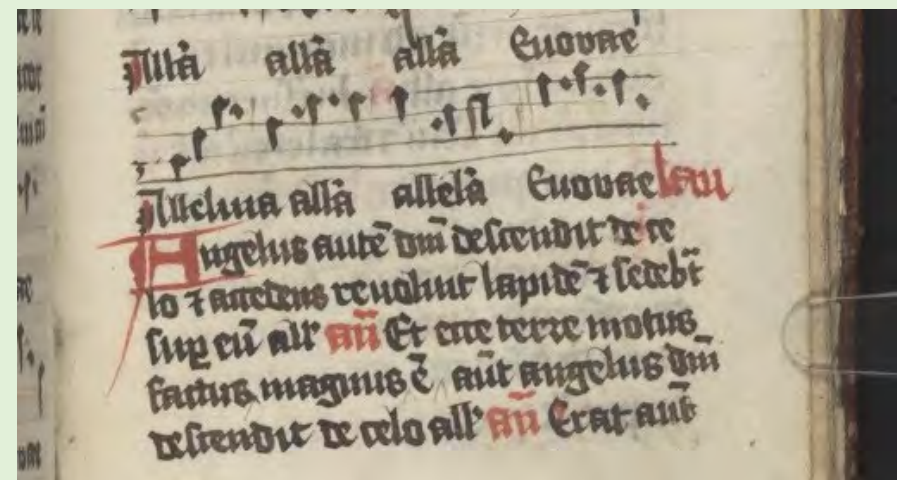 Allã allã allã Euouae
Alleluia allã allelã Euouae lau
Angelus autē dnī descendit de ce
lo ⁊ accedens reuoluit lapidē ⁊ sedebāt
suꝑ eū all' añ Et ecce terre motus
factus magnus ē aūt angelus dnī
descendit de celo all' añ Erat aūt